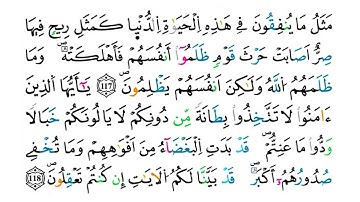 مَثَلُ مَا يُنفِقُونَ فِى هَٰذِهِ ٱلْحَيَوٰةِ ٱلدُّنْيَا كَمَثَلِ رِيحٍ فِيهَا
صِرٌّ أَصَابَتْ حَرْثَ قَوْمٍ ظَلَمُوٓا۟ أَنفُسَهُمْ فَأَهْلَكَتْهُ ۚ وَمَا
ظَلَمَهُمُ ٱللَّهُ وَلَٰكِنْ أَنفُسَهُمْ يَظْلِمُونَ ۝١١٧ يَٰٓأَيُّهَا ٱلَّذِينَ
ءَامَنُوا۟ لَا تَتَّخِذُوا۟ بِطَانَةً مِّن دُونِكُمْ لَا يَأْلُونَكُمْ خَبَالًا
وَدُّوا۟ مَا عَنِتُّمْ قَدْ بَدَتِ ٱلْبَغْضَآءُ مِنْ أَفْوَٰهِهِمْ وَمَا تُخْفِى
صُدُورُهُمْ أَكْبَرُ ۚ قَدْ بَيَّنَّا لَكُمُ ٱلْءَايَٰتِ إِن كُنتُمْ تَعْقِلُونَ ۝١١٨